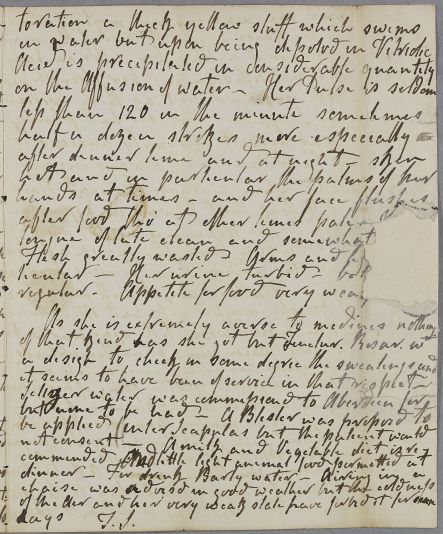 toration a thick yellow stuff which swims
in water but upon being dissolved in Vitriolic
Acid is precipitated in considerable quantity
on the Affusion of water - Her Pulse is seldom
less than 120 in the minute sometimes
half a dozen strokes more especially
after dinner time and at night - skin
hot and in particular the palms of her
hands at times - and her face flushes
after food tho' at other times pale
tongue of late clean and somewhat
Flesh greatly wasted Arms and
ticular - Her urine turbid -
regular - Appetite for food very weak
As she is extremely averse to medicines nothing
of that kind has she got but Tinctur. Rosar. wt
a design to check in some degree the sweatings and
it seems to have been of service in that respect -
Seltzer water was commissiond to Aberdeen for
but none to be had - A Blister was proposd to
be applied inter Scapulas but the patient would
not consent - A milk and Vegetable diet is re-
commended And little light animal food permitted at
dinner. For drink Barly water - Airing in a
chaise was advised in good weather but the coldness
of the Air and her very weak state have forbid it for some
days T. J.